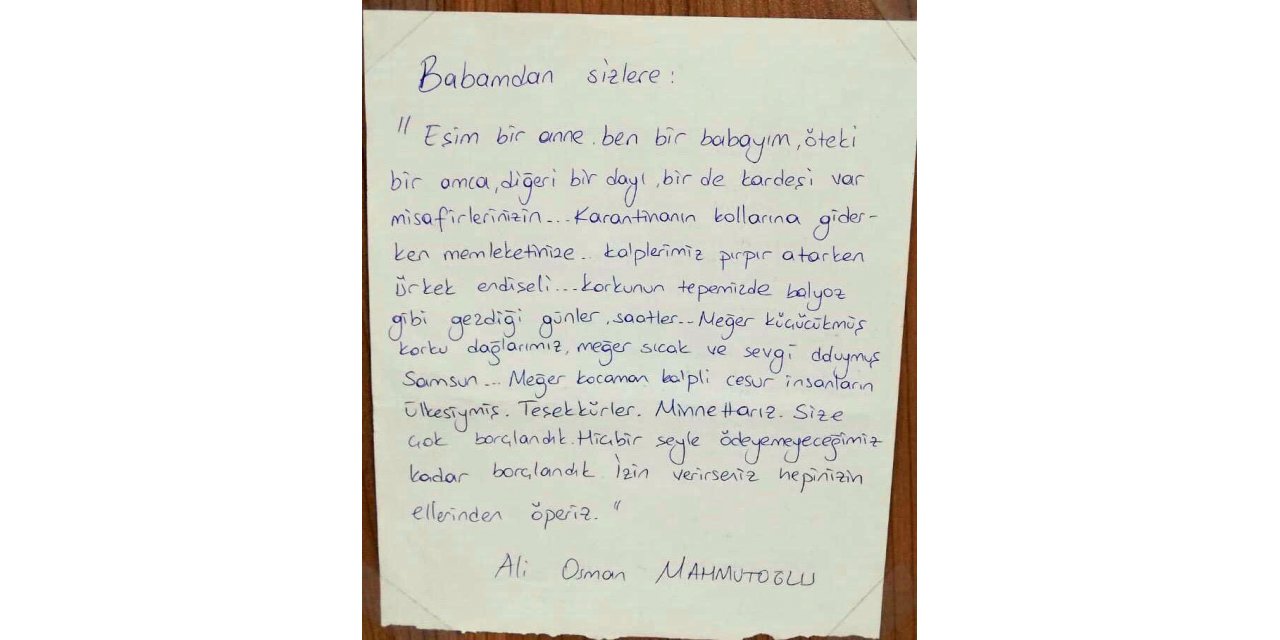 Babamdan sizlere:
" Eşim bir anne. ben bir babayım, öteki
bir amca, diğeri bir dayı, bir de kardeşi var
misafirlerinizin... Karantinanın kollarına gider-
ken memleketinize.. kalplerimiz pırpır atarken
ürkek endişeli... korkunun tepemizde balyoz
gibi gezdiği günler, saatler.. Meğer küçücükmüş
korku dağlarımız, meğer sıcak ve sevgi dduymuş
Samsun... Meğer kocaman kalpli cesur insanların
ülkesiymiş. Teşekkürler. Minnettarız. Size
çok borçlandık. Hiçbir şeyle ödeyemeyeceğimiz
kadar borçlandık. İzin verirseniz hepinizin
ellerinden öperiz. "
Ali Osman MAHMUTOĞLU